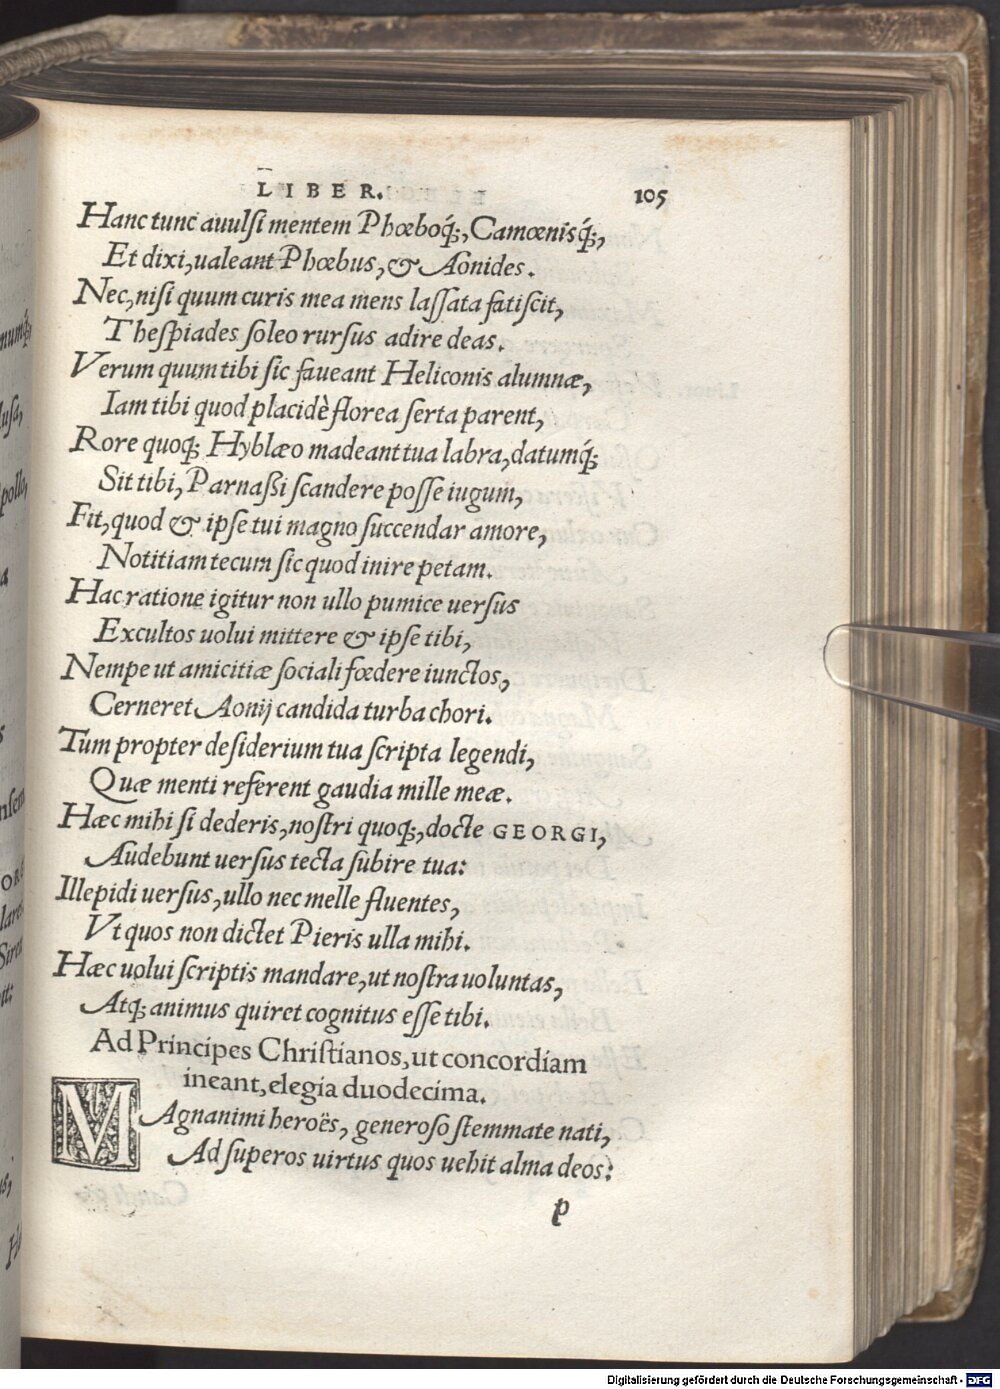 LIBER. 105
Hanc tunc auulsi mentem Phœboq́;, Camœnisq́;,
Et dixi, ualeant Phœbus, & Aonides.
Nec, nisi quum curis mea mens lassata fatiscit,
Thespiades soleo rursus adire deas.
Verum quum tibi sic faueant Heliconis alumnæ,
Iam tibi quod placidè florea serta parent,
Rore quoq; Hyblæo madeant tua labra, datumq́;
Sit tibi, Parnaßi scandere posse iugum,
Fit, quod & ipse tui magno succendar amore,
Notitiam tecum sic quod inire petam.
Hac ratione igitur non ullo pumice uersus
Excultos uolui mittere & ipse tibi,
Nempe ut amicitiæ sociali fœdere iunctos,
Cerneret Aonij candida turba chori.
Tum propter desiderium tua scripta legendi,
Quæ menti referent gaudia mille meæ.
Hæc mihi si dederis, nostri quoq;, docte GEORGI,
Audebunt uersus tecta subire tua:
Illepidi uersus, ullo nec melle fluentes,
Vt quos non dictet Pieris ulla mihi.
Hæc uolui scriptis mandare, ut nostra uoluntas,
Atq; animus quiret cognitus esse tibi.
Ad Principes Christianos, ut concordiam
ineant, elegia duodecima.
MAgnanimi heroës, generoso stemmate nati,
Ad superos uirtus quos uehit alma deos:
p
Digitalisierung gefördert durch die Deutsche Forschungsgemeinschaft - DFG